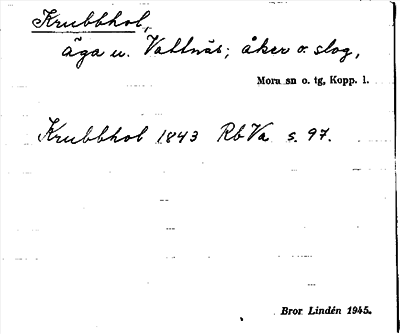 Krubbhol,
äga u. Vattnäs; åker o. slog,
Mora sn o. tg, Kopp. l.
Krubbhol 1843 RbVa s. 97.
Bror Lindén 1945.